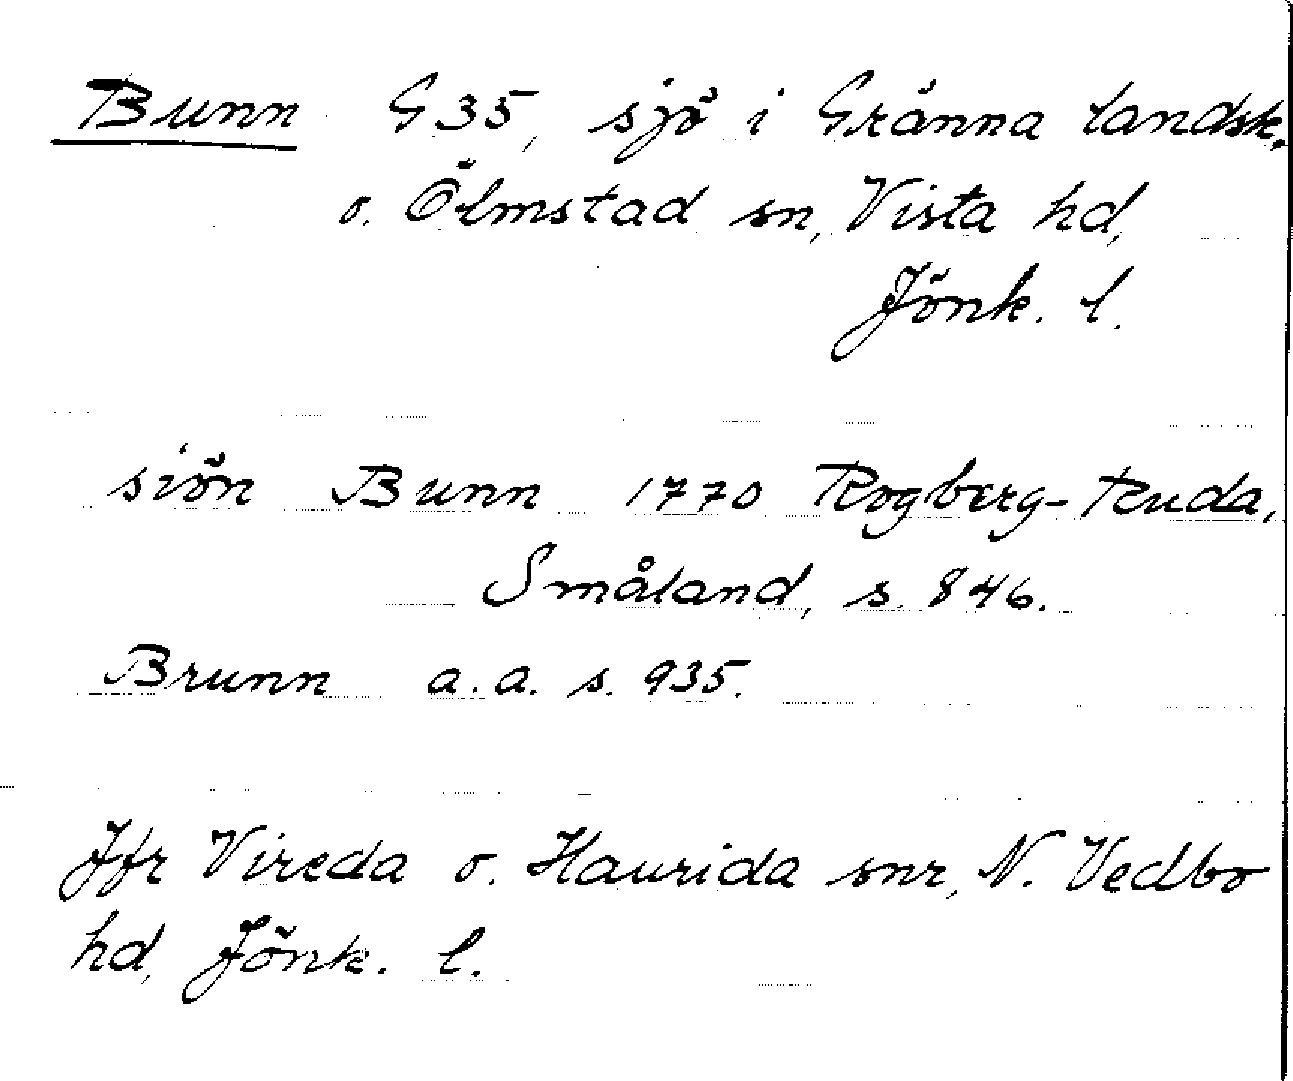 Bunn G 35, sjö i Gränna landsk.
o. Ölmstad sn, Vista hd,
Jönk. l.
siön Bunn 1770 Rogberg-Ruda,
Småland, s. 846.
Brunn a.a. s. 935.
Jfr Vireda o. Haurida snr, N. Vedbo
hd, Jönk. l.